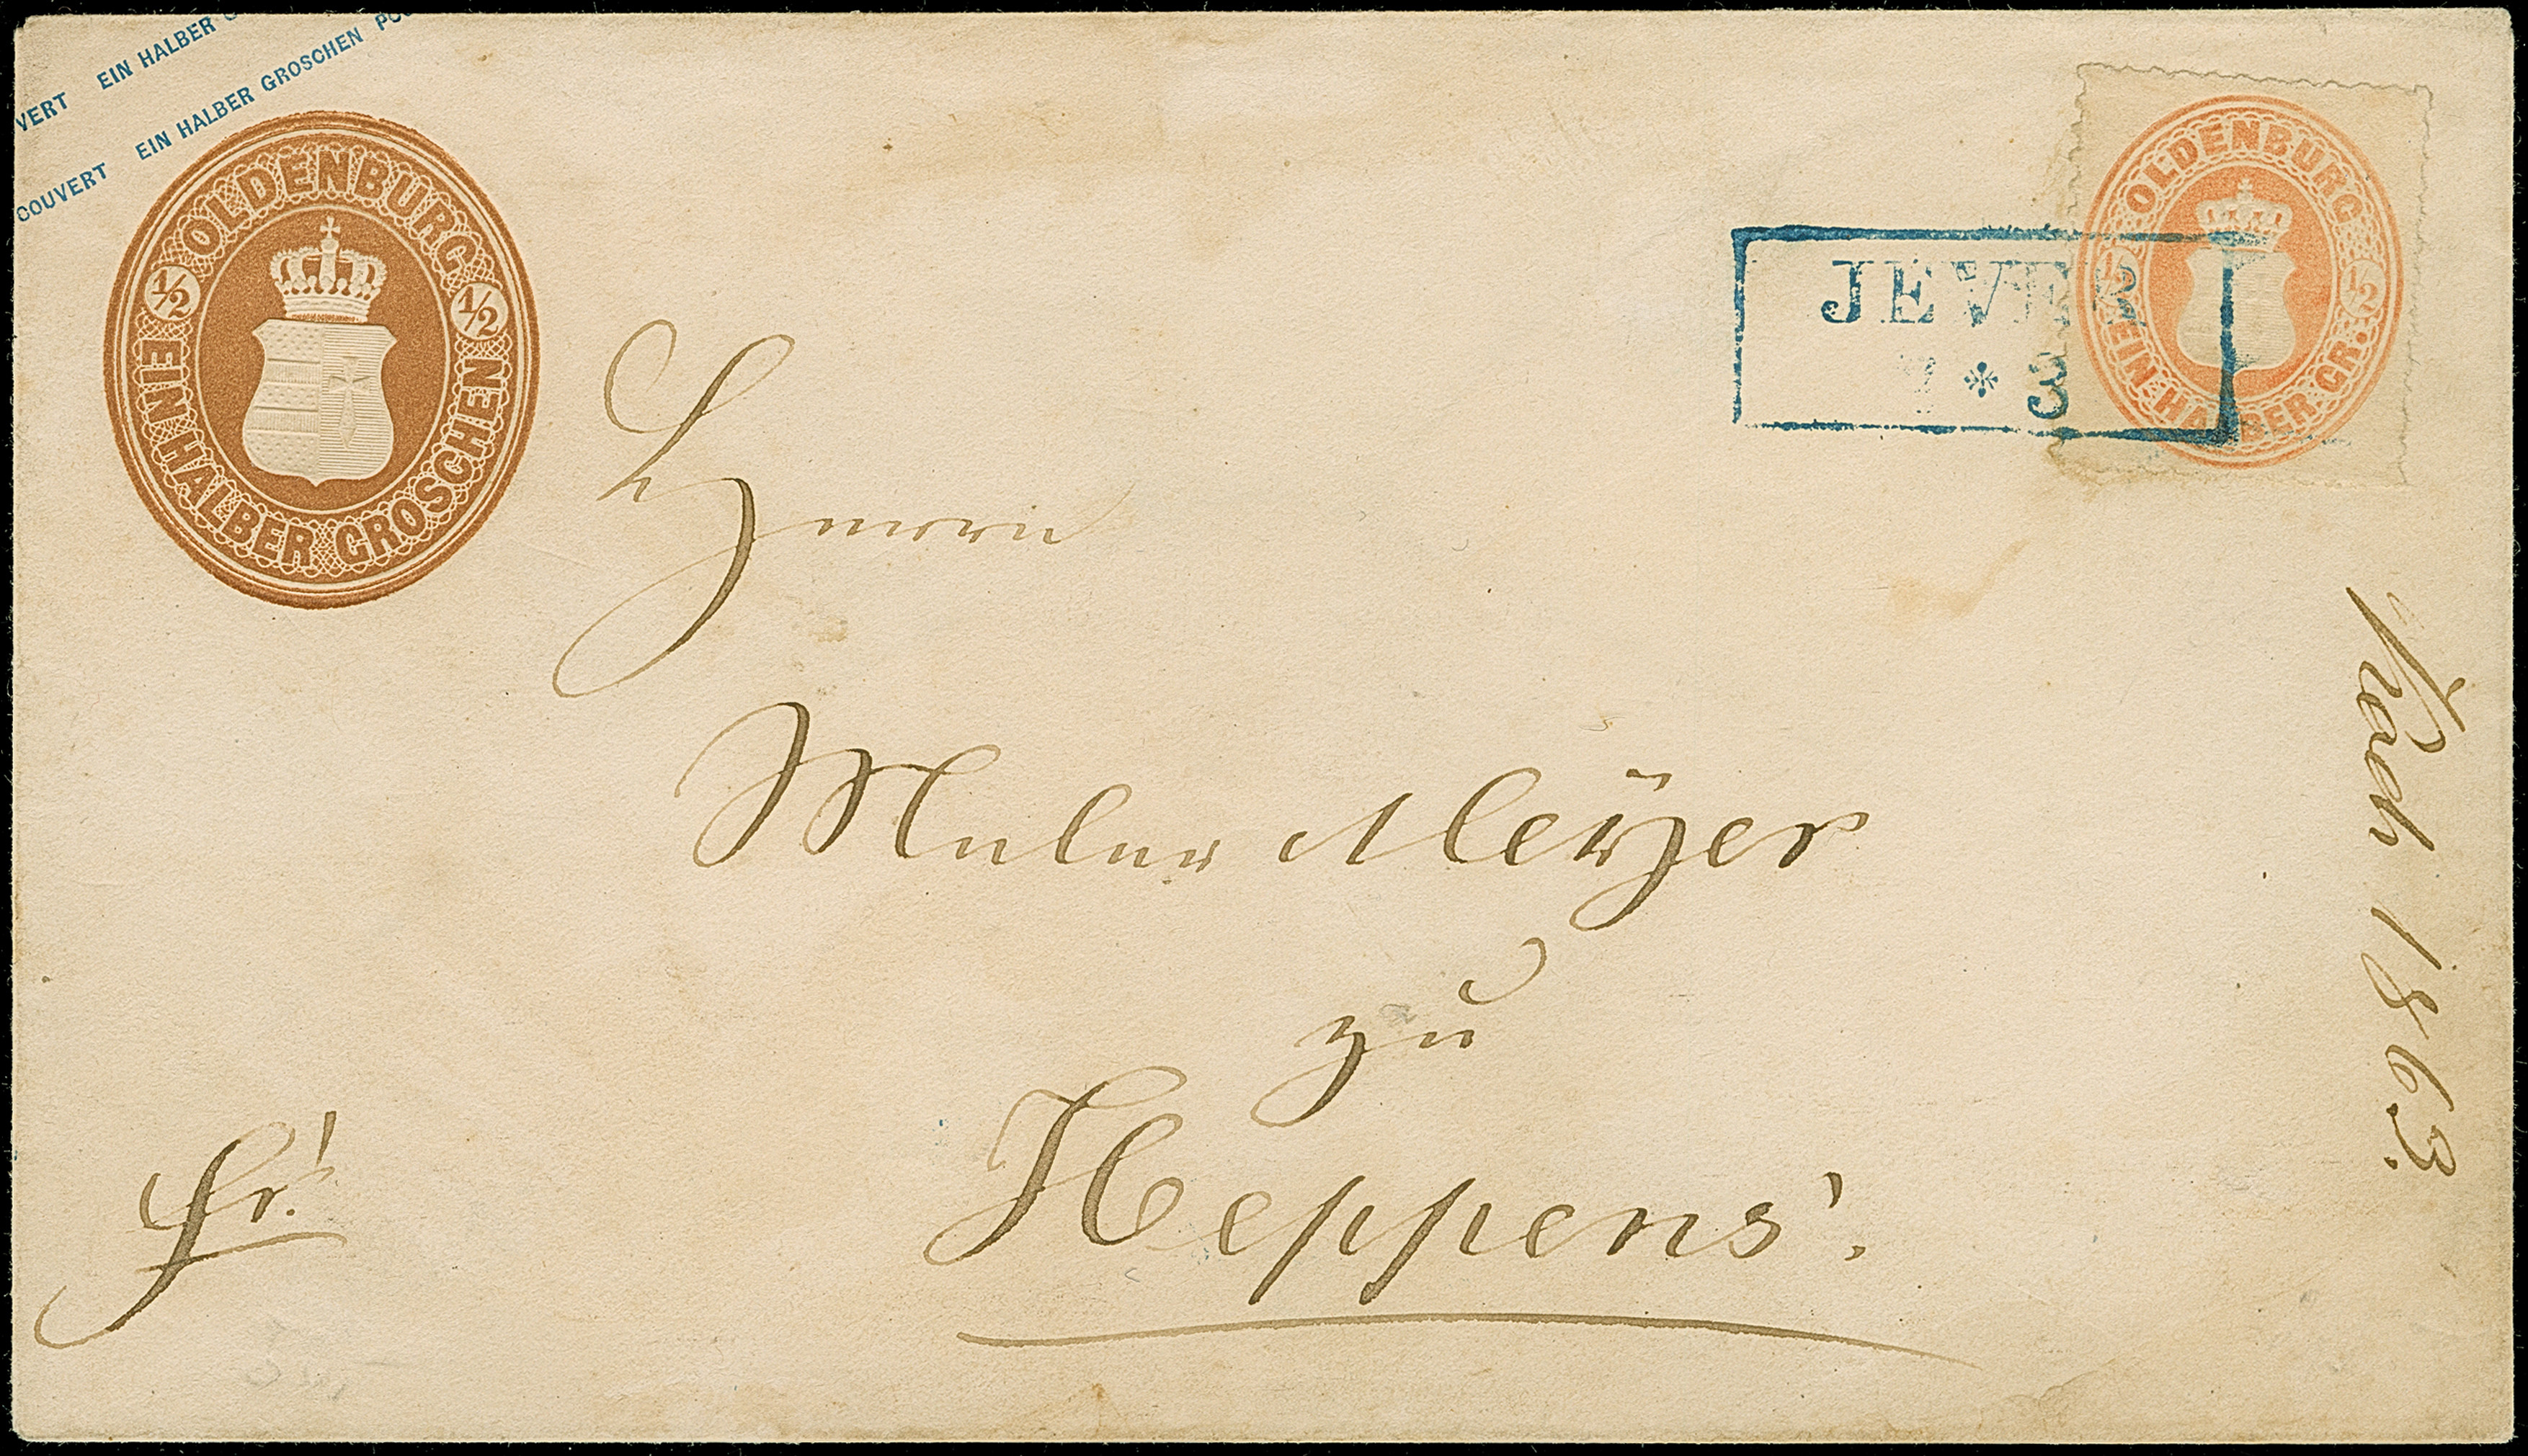 VERT EIN HALBER
COUVERT EIN HALBER GROSCHEN PO
OLDENBURG
1/2 1/2
EIN HALBER GROSCHEN
OLDENBURG
1/2 1/2
EIN HALBER GR.
JEVER
* 3
Herrn
Maler Meÿer
zu
Heppens.
fr!
1863.